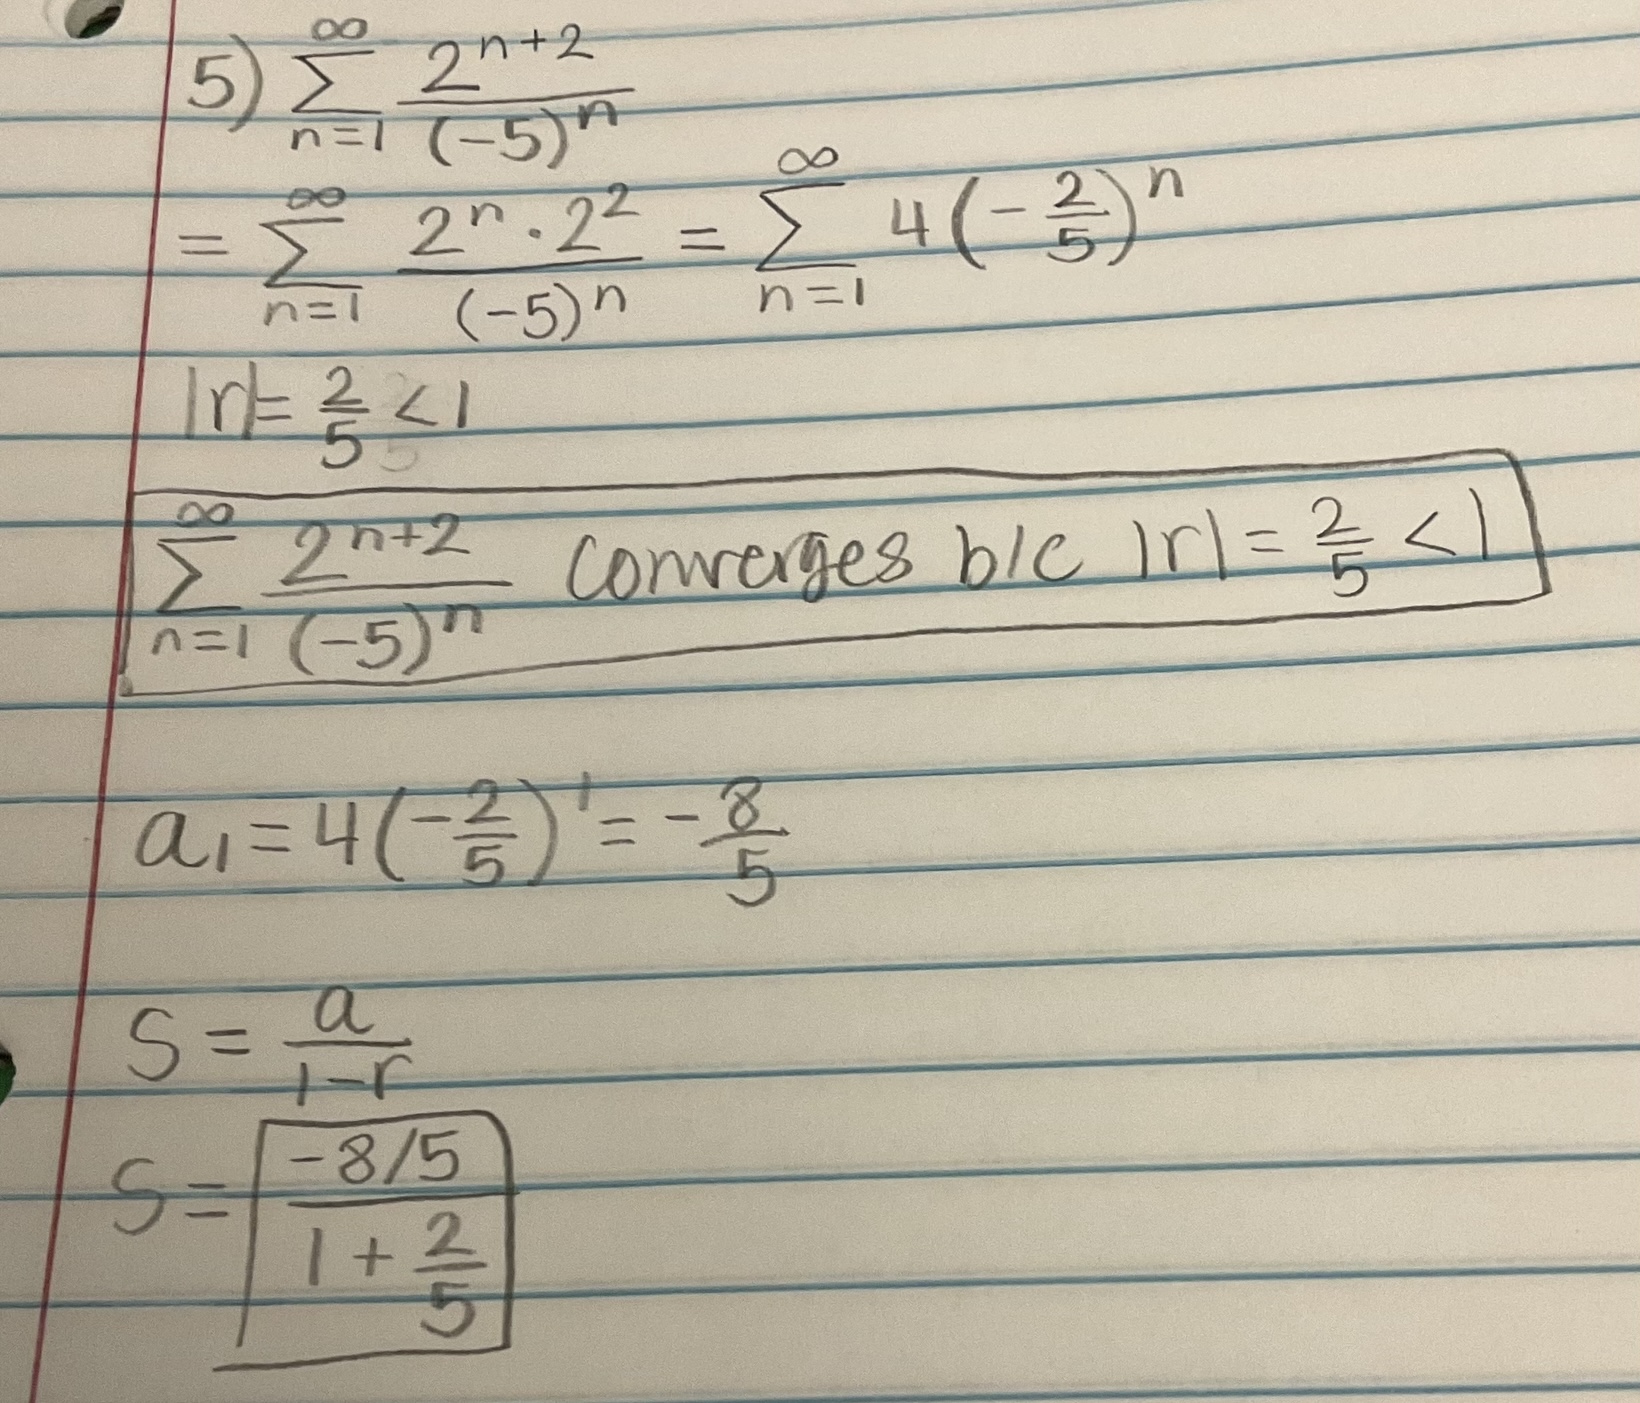 5) ∑_{n=1}^{∞} 2^{n+2}/(-5)^n
= ∑_{n=1}^{∞} (2^n · 2^2)/(-5)^n = ∑_{n=1}^{∞} 4(-2/5)^n
|r| = 2/5 < 1
∑_{n=1}^{∞} 2^{n+2}/(-5)^n converges b/c |r| = 2/5 < 1
a₁ = 4(-2/5)^1 = -8/5
S = a/(1-r)
S = (-8/5)/(1 + 2/5)